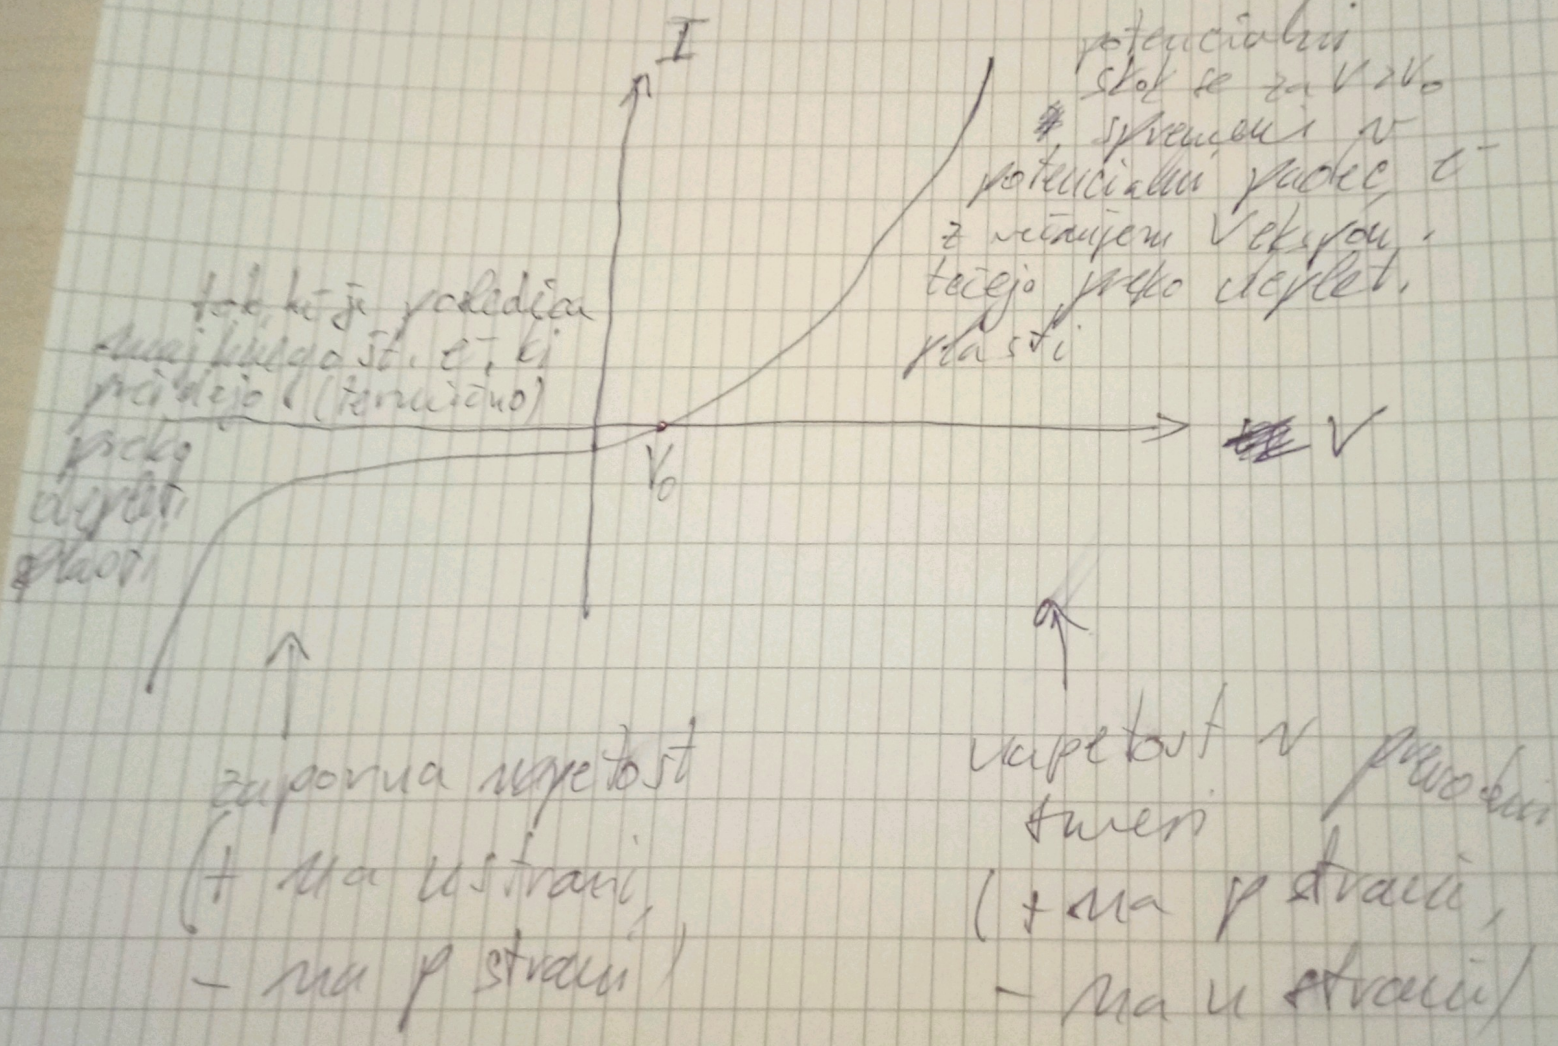 I
potencialni
skok se za V>V₀
spremeni v
potencialni padec, e⁻
z večanjem V ekspon.
tečejo preko deplet.
plasti
tok, ki je posledica
majhnega št. e⁻, ki
preidejo (termično)
preko
deplet.
plasti
V₀
V
zaporna napetost
(+ na n strani,
- na p strani)
napetost v prevodni
smeri
(+ na p strani,
- na n strani)